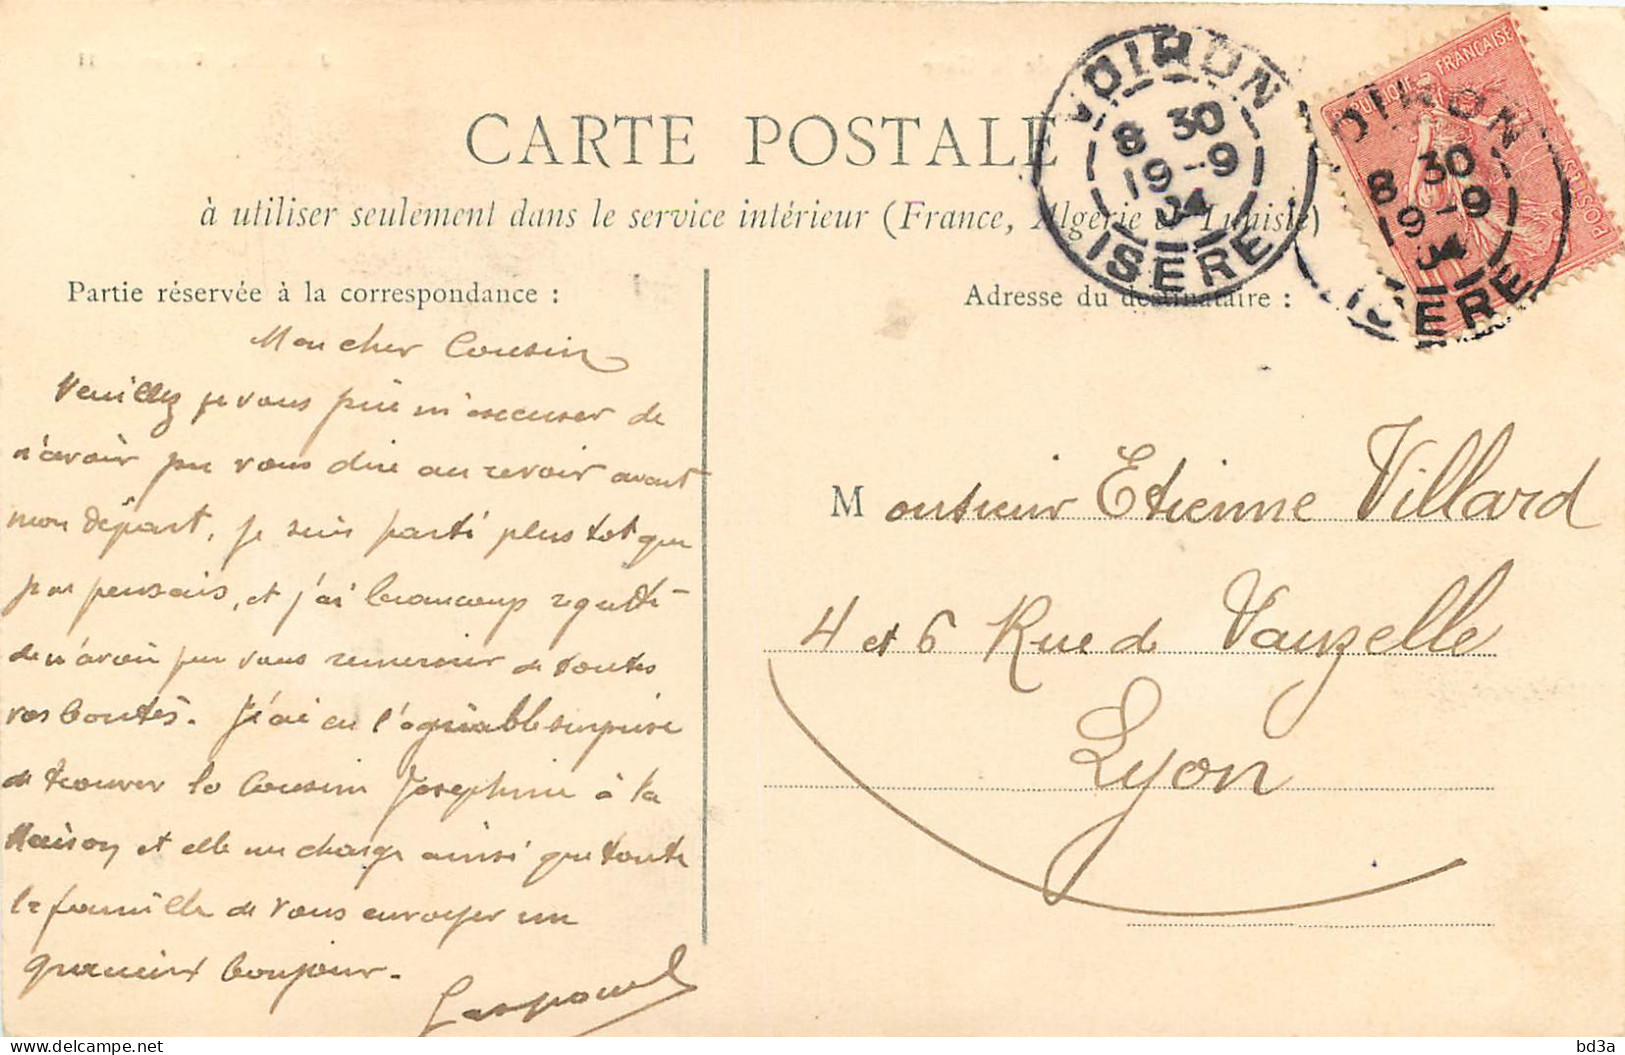 CARTE POSTALE
à utiliser seulement dans le service intérieur (France, Algérie & Tunisie)
VOIRON
8 30
19-9
04
ISÈRE
RÉPUBLIQUE FRANÇAISE
POSTES
OIRON
8 30
19-9
04
ISÈRE
Partie réservée à la correspondance :
Mon cher Cousin
Veuillez je vous prie m'excuser de
n'avoir pu vous dire au revoir avant
mon départ, je suis parti plus tot que
pensais, et j'ai beaucoup regretté
de n'avoir pu vous remercier de toutes
vos bontés. J'ai eu l'agréable surprise
de trouver la Cousine Josephine à la
Maison et elle me charge ainsi que toute
la famille de vous envoyer un
gracieux bonjour.
Adresse du destinataire :
Monsieur Etienne Villard
4 et 6 Rue de Vauzelle
Lyon
bd3a